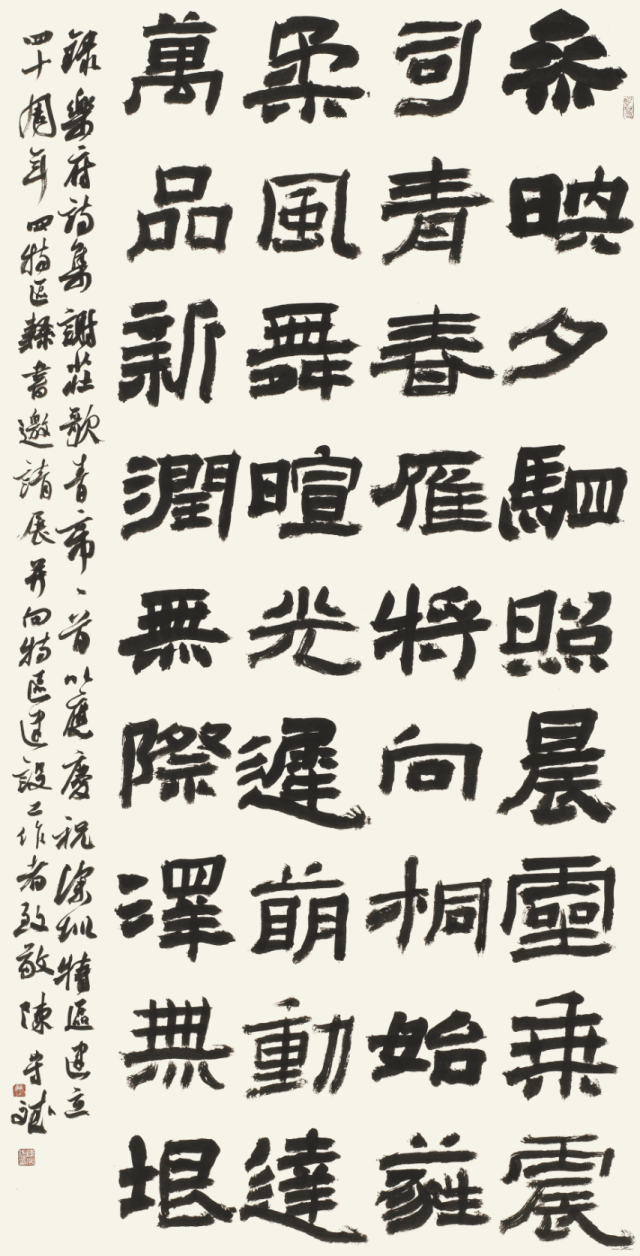 叅映夕駟照晨靈乘震
司青春雁將向桐始蕤
柔風舞暄光遲萌動達
萬品新潤無際澤無垠
錄樂府詩集謝莊歌青帝一首以應慶祝深圳特區建立
四十周年四特區隸書邀請展并向特區建設工作者致敬陳斌